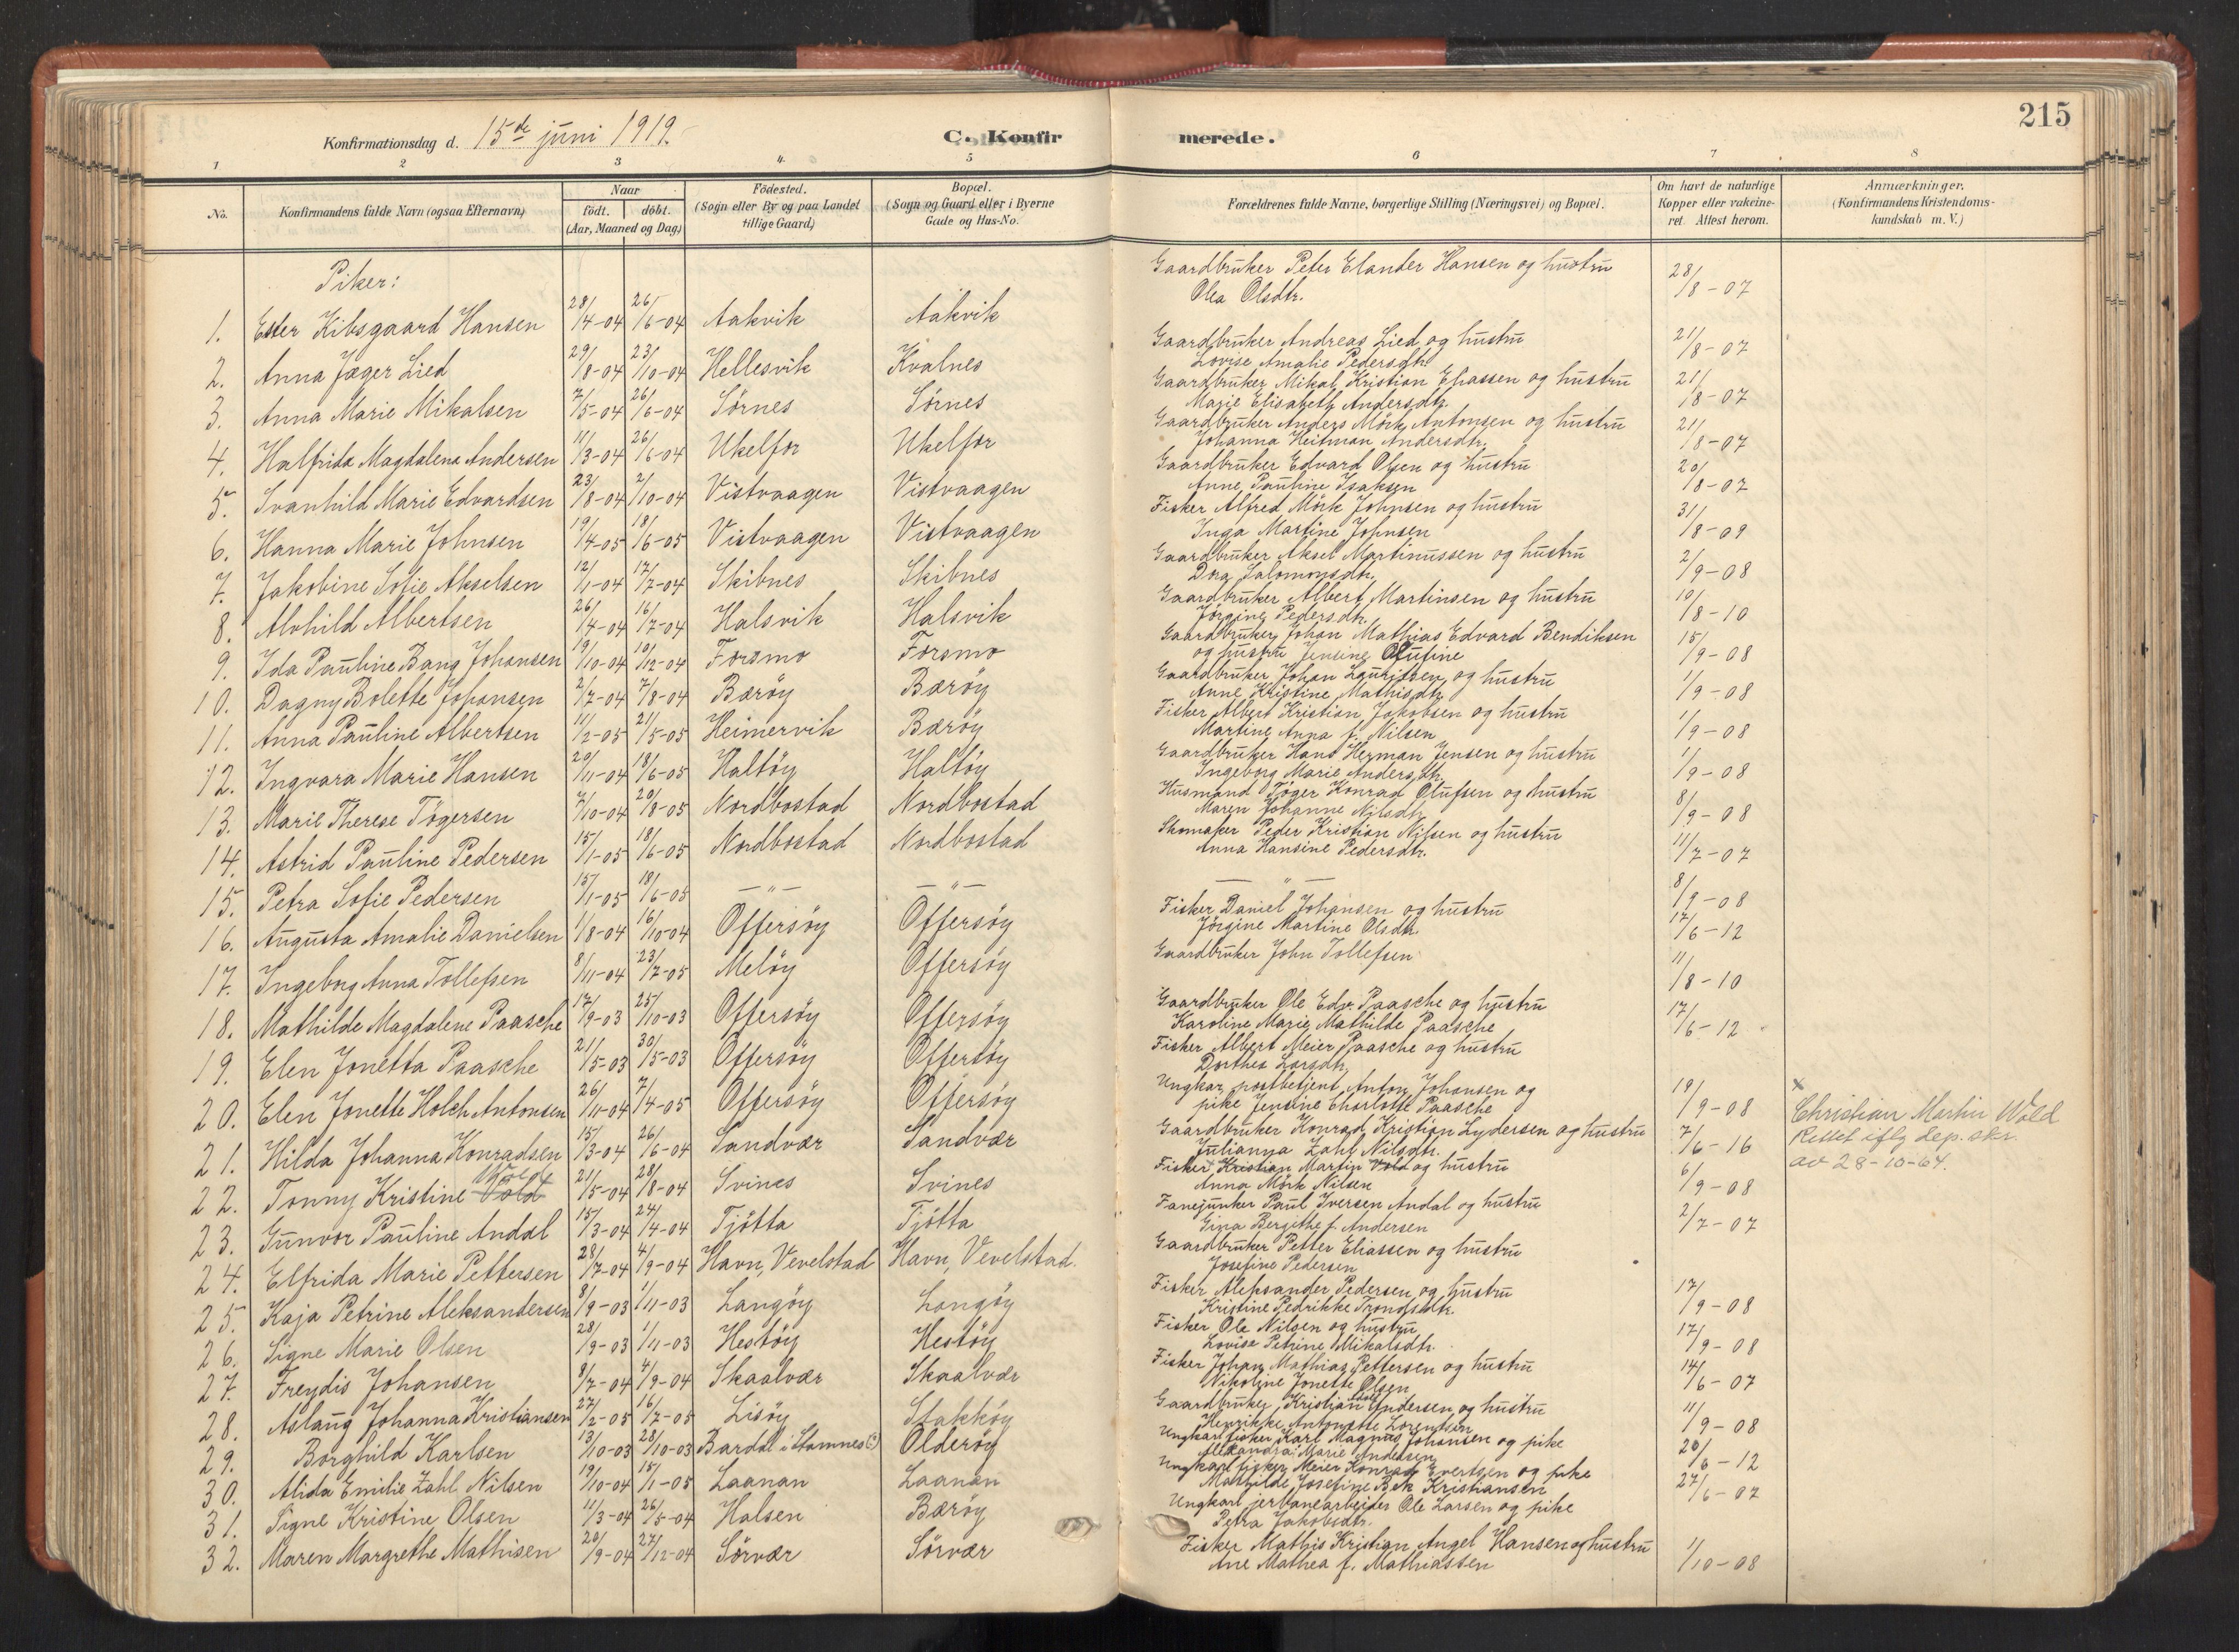 215
Konfirmationsdag d. 15de juni 1919.
C. Konfirmerede.
1 2 3 4. 5 6 7 8
No. Konfirmandens fulde Navn (ogsaa Efternavn) Naar født. døbt. (Aar, Maaned og Dag) Födested. (Sogn eller By og paa Landet tillige Gaard) Bopæl. (Sogn og Gaard eller i Byerne Gade og Hus-No. Forældrenes fulde Navne, borgerlige Stilling (Næringsvei) og Bopæl. Om havt de naturlige Kopper eller vakcineret. Attest herom. Anmærkninger. (Konfirmandens Kristendomskundskab m. V.)
Piker:
1. Ester Kibsgaard Hansen 28/4-04 26/6-04 Aakvik Aakvik Gaardbruker Peter Elander Hansen og hustru Olea Olsdtr. 28/8-07
2. Anna Jæger Lied 29/8-04 23/10-04 Hellesvik Kvalnes Gaardbruker Andreas Lied og hustru Lovise Amalie Pedersdtr. 21/8-07
3. Anna Marie Mikalsen 7/5-04 26/6-04 Sørnes Sørnes Gaardbruker Mikal Kristian Eliassen og hustru Marie Elisabeth Andersdtr. 21/8-07
4. Halfrida Magdalena Andersen 11/3-04 26/6-04 Ukelfor Ukelfor Gaardbruker Anders Mörk Antonsen og hustru Johanna Heitman Andersdtr. 21/8-07
5. Svanhild Marie Edvardsen 23/8-04 2/10-04 Vistvaagen Vistvaagen Gaardbruker Edvard Olsen og hustru Anne Pauline Isaksen 20/8-07
6. Hanna Marie Johnsen 19/4-05 18/6-05 Vistvaagen Vistvaagen Fisker Alfred Mörk Johnsen og hustru Inga Martine Johnsen 31/8-09
7. Jakobine Sofie Akselsen 12/1-04 17/7-04 Skibnes Skibnes Gaardbruker Aksel Martinussen og hustru Dora Salomonsdtr. 2/9-08
8. Alvhild Albertsen 26/4-04 16/7-04 Halsvik Halsvik Gaardbruker Albert Martinsen og hustru Jörgine Pedersdtr. 10/8-10
9. Ida Pauline Bang Johansen 19/10-04 19/12-04 Forsmo Forsmo Gaardbruker Johan Mathias Edvard Bendiksen og hustru Jensine Olufine 15/9-08
10. Dagny Bolette Johansen 2/7-04 7/8-04 Bærøy Bærøy Gaardbruker Johan Lauritsen og hustru Anne Kristine Mathisdtr. 1/9-08
11. Anna Pauline Albertsen 11/2-05 21/5-05 Heimervik Bærøy Fisker Albert Kristian Jakobsen og hustru Martine Anna f. Nilsen 1/9-08
12. Ingvara Marie Hansen 20/11-04 18/6-05 Haltöy Haltöy Gaardbruker Hans Herman Jensen og hustru Ingeborg Marie Andersdtr. 1/9-08
13. Marie Therese Tögersen 7/10-04 20/8-05 Nordbostad Nordbostad Husmand Töger Konrad Olufsen og hustru Maren Johanne Nilsdtr. 8/9-08
14. Astrid Pauline Pedersen 15/1-05 18/6-05 Nordbostad Nordbostad Skomaker Peder Kristian Nilsen og hustru Anna Hansine Pedersdtr. 11/7-07
15. Petra Sofie Pedersen 15/1-05 18/6-05 —"— —"— — " — 8/9-08
16. Augusta Amalie Danielsen 1/8-04 16/10-04 Offersøy Offersøy Fisker Daniel Johansen og hustru Jörgine Martine Olsdtr. 17/6-12
17. Ingeborg Anna Tollefsen 8/11-04 23/7-05 Meløy Offersøy Gaardbruker John Tollefsen 11/8-10
18. Mathilde Magdalene Paasche 17/9-03 25/10-03 Offersøy Offersøy Gaardbruker Ole Edv. Paasche og hustru Karoline Marie Mathilde Paasche 17/6-12
19. Elen Jonetta Paasche 21/5-03 30/5-03 Offersøy Offersøy Fisker Albert Meier Paasche og hustru Dorthea Larsdtr.
20. Elen Jonette Holch Antonsen 26/11-04 7/4-05 Offersøy Offersøy Ungkar postbetjent Anton Johansen og pike Jensine Charlotte Paasche 19/9-08
21. Hilda Johanna Konradsen 15/3-04 26/6-04 Sandvær Sandvær Gaardbruker Konrad Kristian Lydersen og hustru Julianna Zahl Nilsdtr. 7/6-16
22. Tonny Kristine Vold Wold 21/5-04 28/8-04 Svines Svines Fisker Kristian Martin Vold og hustru Anna Mörk Nilsen 6/9-08 x Christian Martin Wold Rettet iflg dep. skr. av 28-10-64.
23. Gunvor Pauline Andal 15/3-04 24/4-04 Tjötta Tjötta Fanejunker Paul Iversen Andal og hustru Gina Bergithe f. Andersen 2/7-07
24. Elfrida Marie Pettersen 28/7-04 4/9-04 Havn, Vevelstad Havn, Vevelstad. Gaardbruker Petter Eliassen og hustru Josefine Pedersen
25. Kaja Petrine Aleksandersen 8/9-03 1/11-03 Langöy Langöy Fisker Aleksander Pedersen og hustru Kristine Pedrikke Trondsdtr. 17/9-08
26. Signe Marie Olsen 28/9-03 1/11-03 Hestöy Hestöy Fisker Ole Nilsen og hustru Lovise Petrine Mikalsdtr. 17/9-08
27. Freydis Johansen 8/7-04 4/9-04 Skaalvær Skaalvær Fisker Johan Mathias Pettersen og hustru Nikoline Jonette Olsen 14/6-07
28. Aslaug Johanna Kristiansen 27/2-05 16/7-05 Lisøy Stakkøy Gaardbruker Kristian Andersen og hustru Henrikke Antonette Lorentsen 11/9-08
29. Borghild Karlsen 13/10-03 28/10-03 Bardal i Stamnes (?) Olderøy Ungkar fisker Karl Magnus Johansen og pike Alexandra Marie Andersen 20/6-12
30. Alida Emilie Zahl Nilsen 19/10-04 15/1-05 Laanan Laanan Ungkarl fisker Meier Konrad Evertsen og pike Mathilde Josefine Bek Kristiansen 27/6-07
31. Signe Kristine Olsen 11/3-04 26/5-04 Halsen Bærøy Ungkarl jerbanearbeider Ole Larsen og pike Petra Jakobsdtr.
32. Maren Margrethe Mathisen 20/9-04 27/12-04 Sörvær Sörvær Fisker Mathis Kristian Angel Hansen og hustru Ane Mathea f. Mathiassen 1/10-08